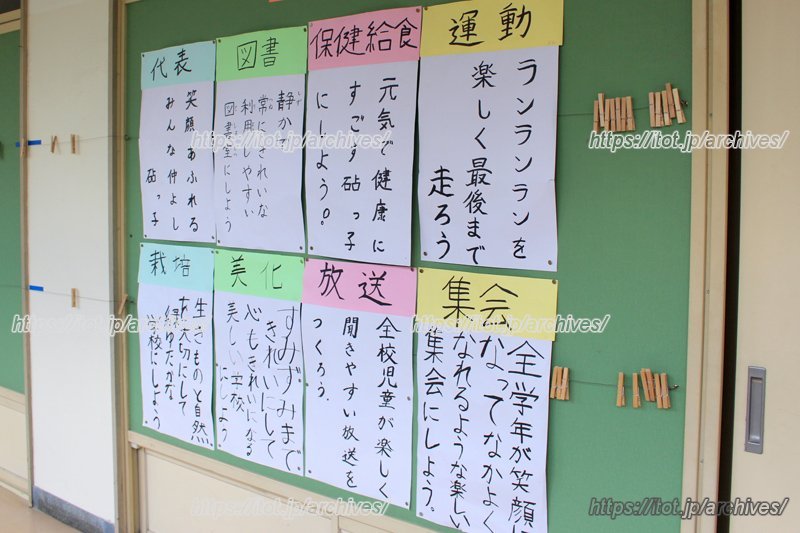 代表
笑顔あふれる
みんな仲よし
砧っ子
図書
静かで
常にきれいな
利用しやすい
図書室にしよう
保健給食
元気で健康に
すごす砧っ子
にしよう。
運動
ランランランを
楽しく最後まで
走ろう
栽培
生きものと自然
を大切にして
緑ゆたかな
学校にしよう
美化
すみずみまで
きれいにして
心もきれいになる
美しい学校
にしよう
放送
全校児童が楽しく
聞きやすい放送を
つくろう.
集会
全学年が笑顔に
なってなかよく
なれるような楽しい
集会にしよう。
https://itot.jp/archives/
https://itot.jp/archives/
https://itot.jp/archives/
https://itot.jp/archives/
https://itot.jp/archives/
https://itot.jp/archives/